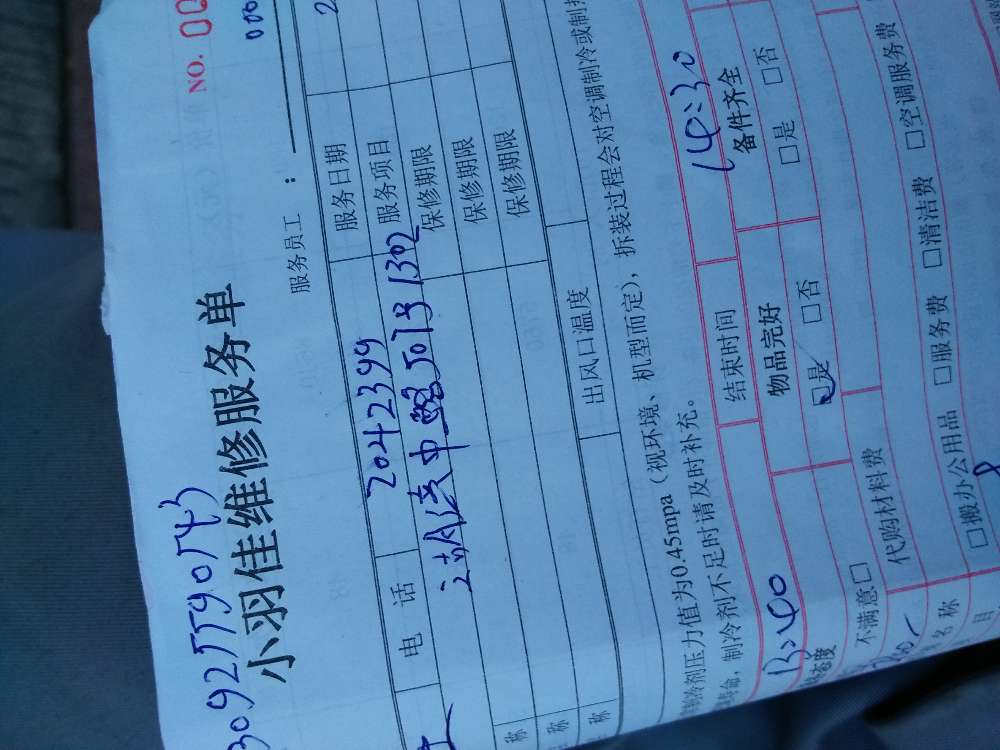 NO. 00
000
30925590543
小羽佳维修服务单
服务员工：
电 话 20442399 服务日期 2
中 5078 1302 服务项目
保修期限
称 保修期限
称 保修期限
称 出风口温度
制冷剂压力值为0.45mpa（视环境、机型而定），拆装过程会对空调制冷或制
寿命，制冷剂不足时请及时补充。
13:40 结束时间 14:30
态度 物品完好 备件齐全
不满意□ ☑是 □否 □是 □否
代购材料费
名称 □搬办公用品 □服务费 □清洁费 □空调服务费
目